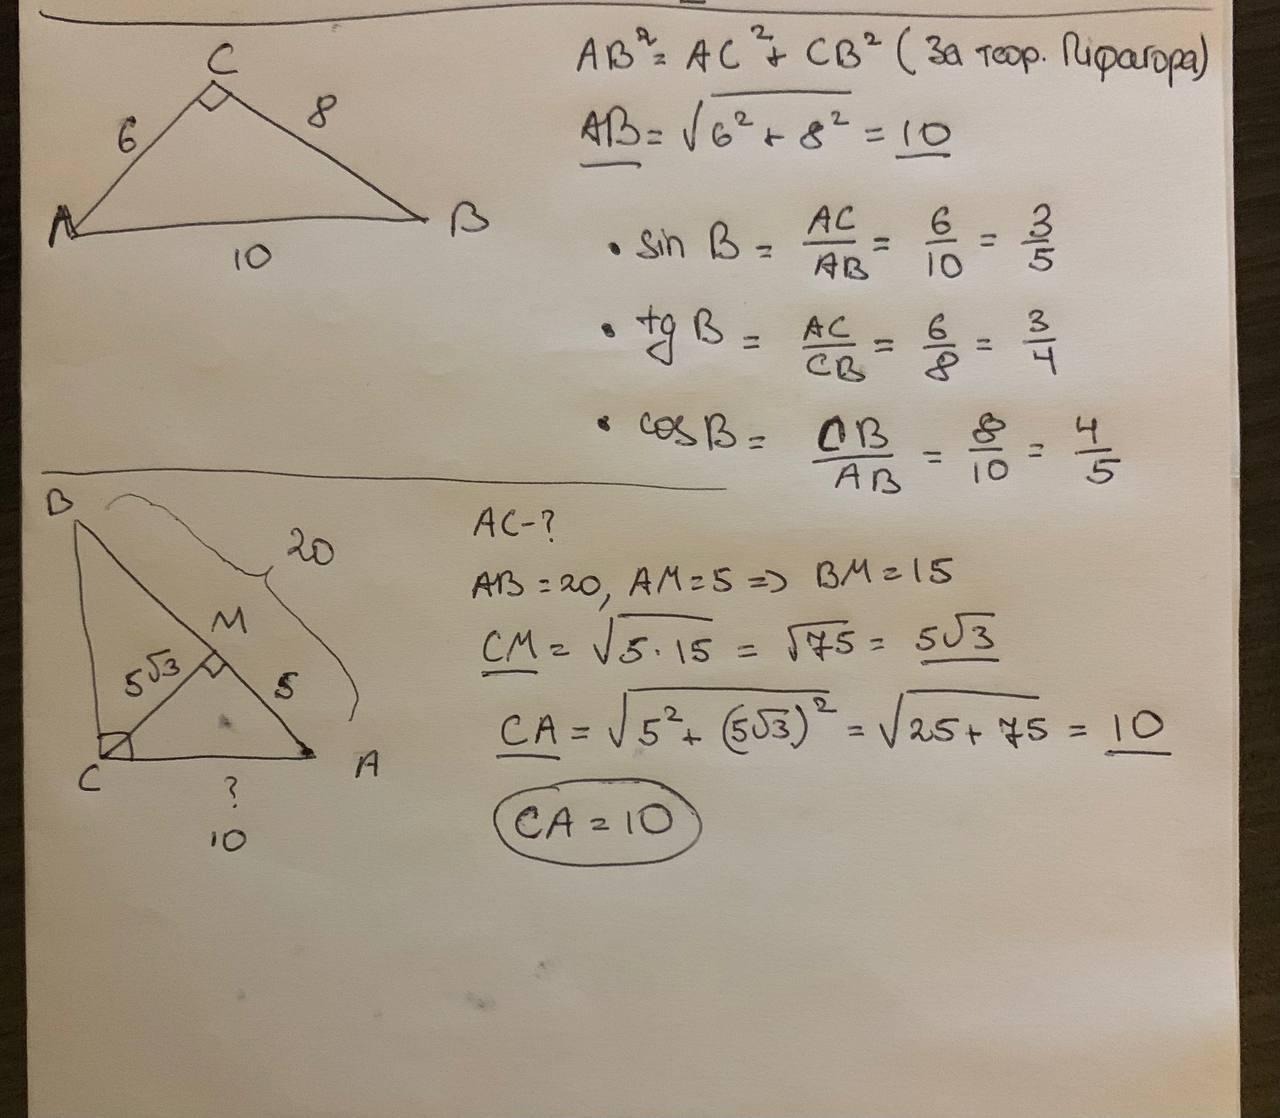 C
6
8
A
B
10
AB² = AC² + CB² (За теор. Піфагора)
AB = √(6² + 8²) = 10
• sin B = AC/AB = 6/10 = 3/5
• tg B = AC/CB = 6/8 = 3/4
• cos B = CB/AB = 8/10 = 4/5
B
20
M
5√3
5
C
A
?
10
AC-?
AB = 20, AM = 5 => BM = 15
CM = √(5·15) = √75 = 5√3
CA = √(5² + (5√3)²) = √(25 + 75) = 10
CA = 10